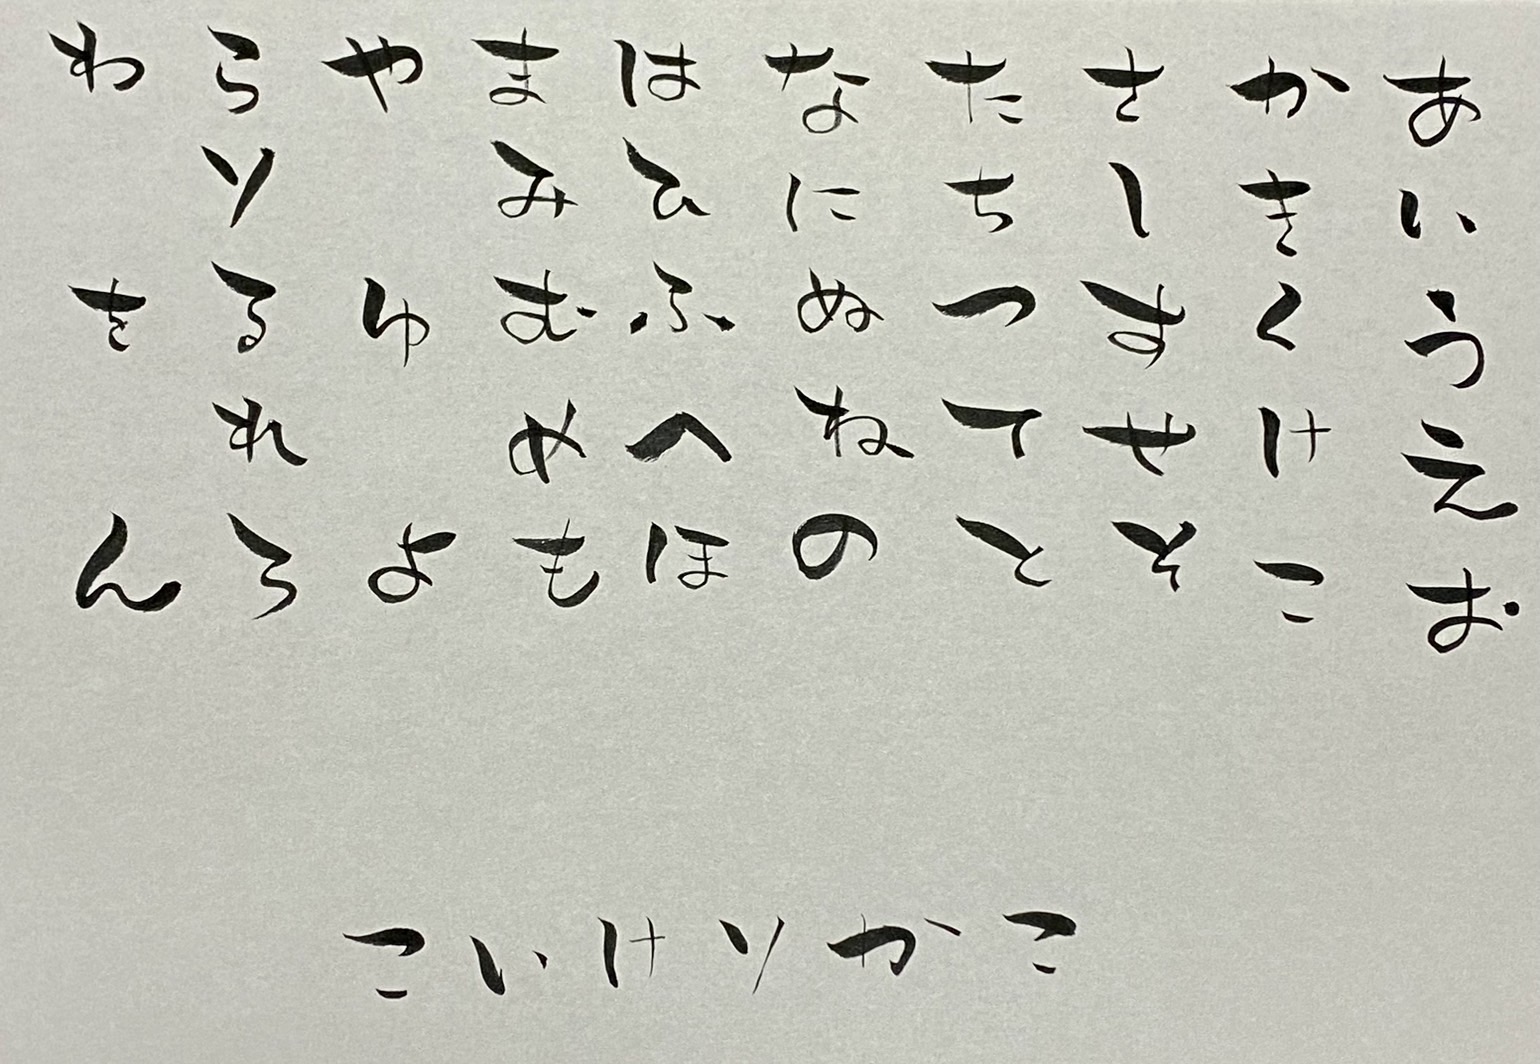 あいうえお
かきくけこ
さしすせそ
たちつてと
なにぬねの
はひふへほ
まみむめも
や ゆ よ
らりるれろ
わ を ん
こいけりかこ